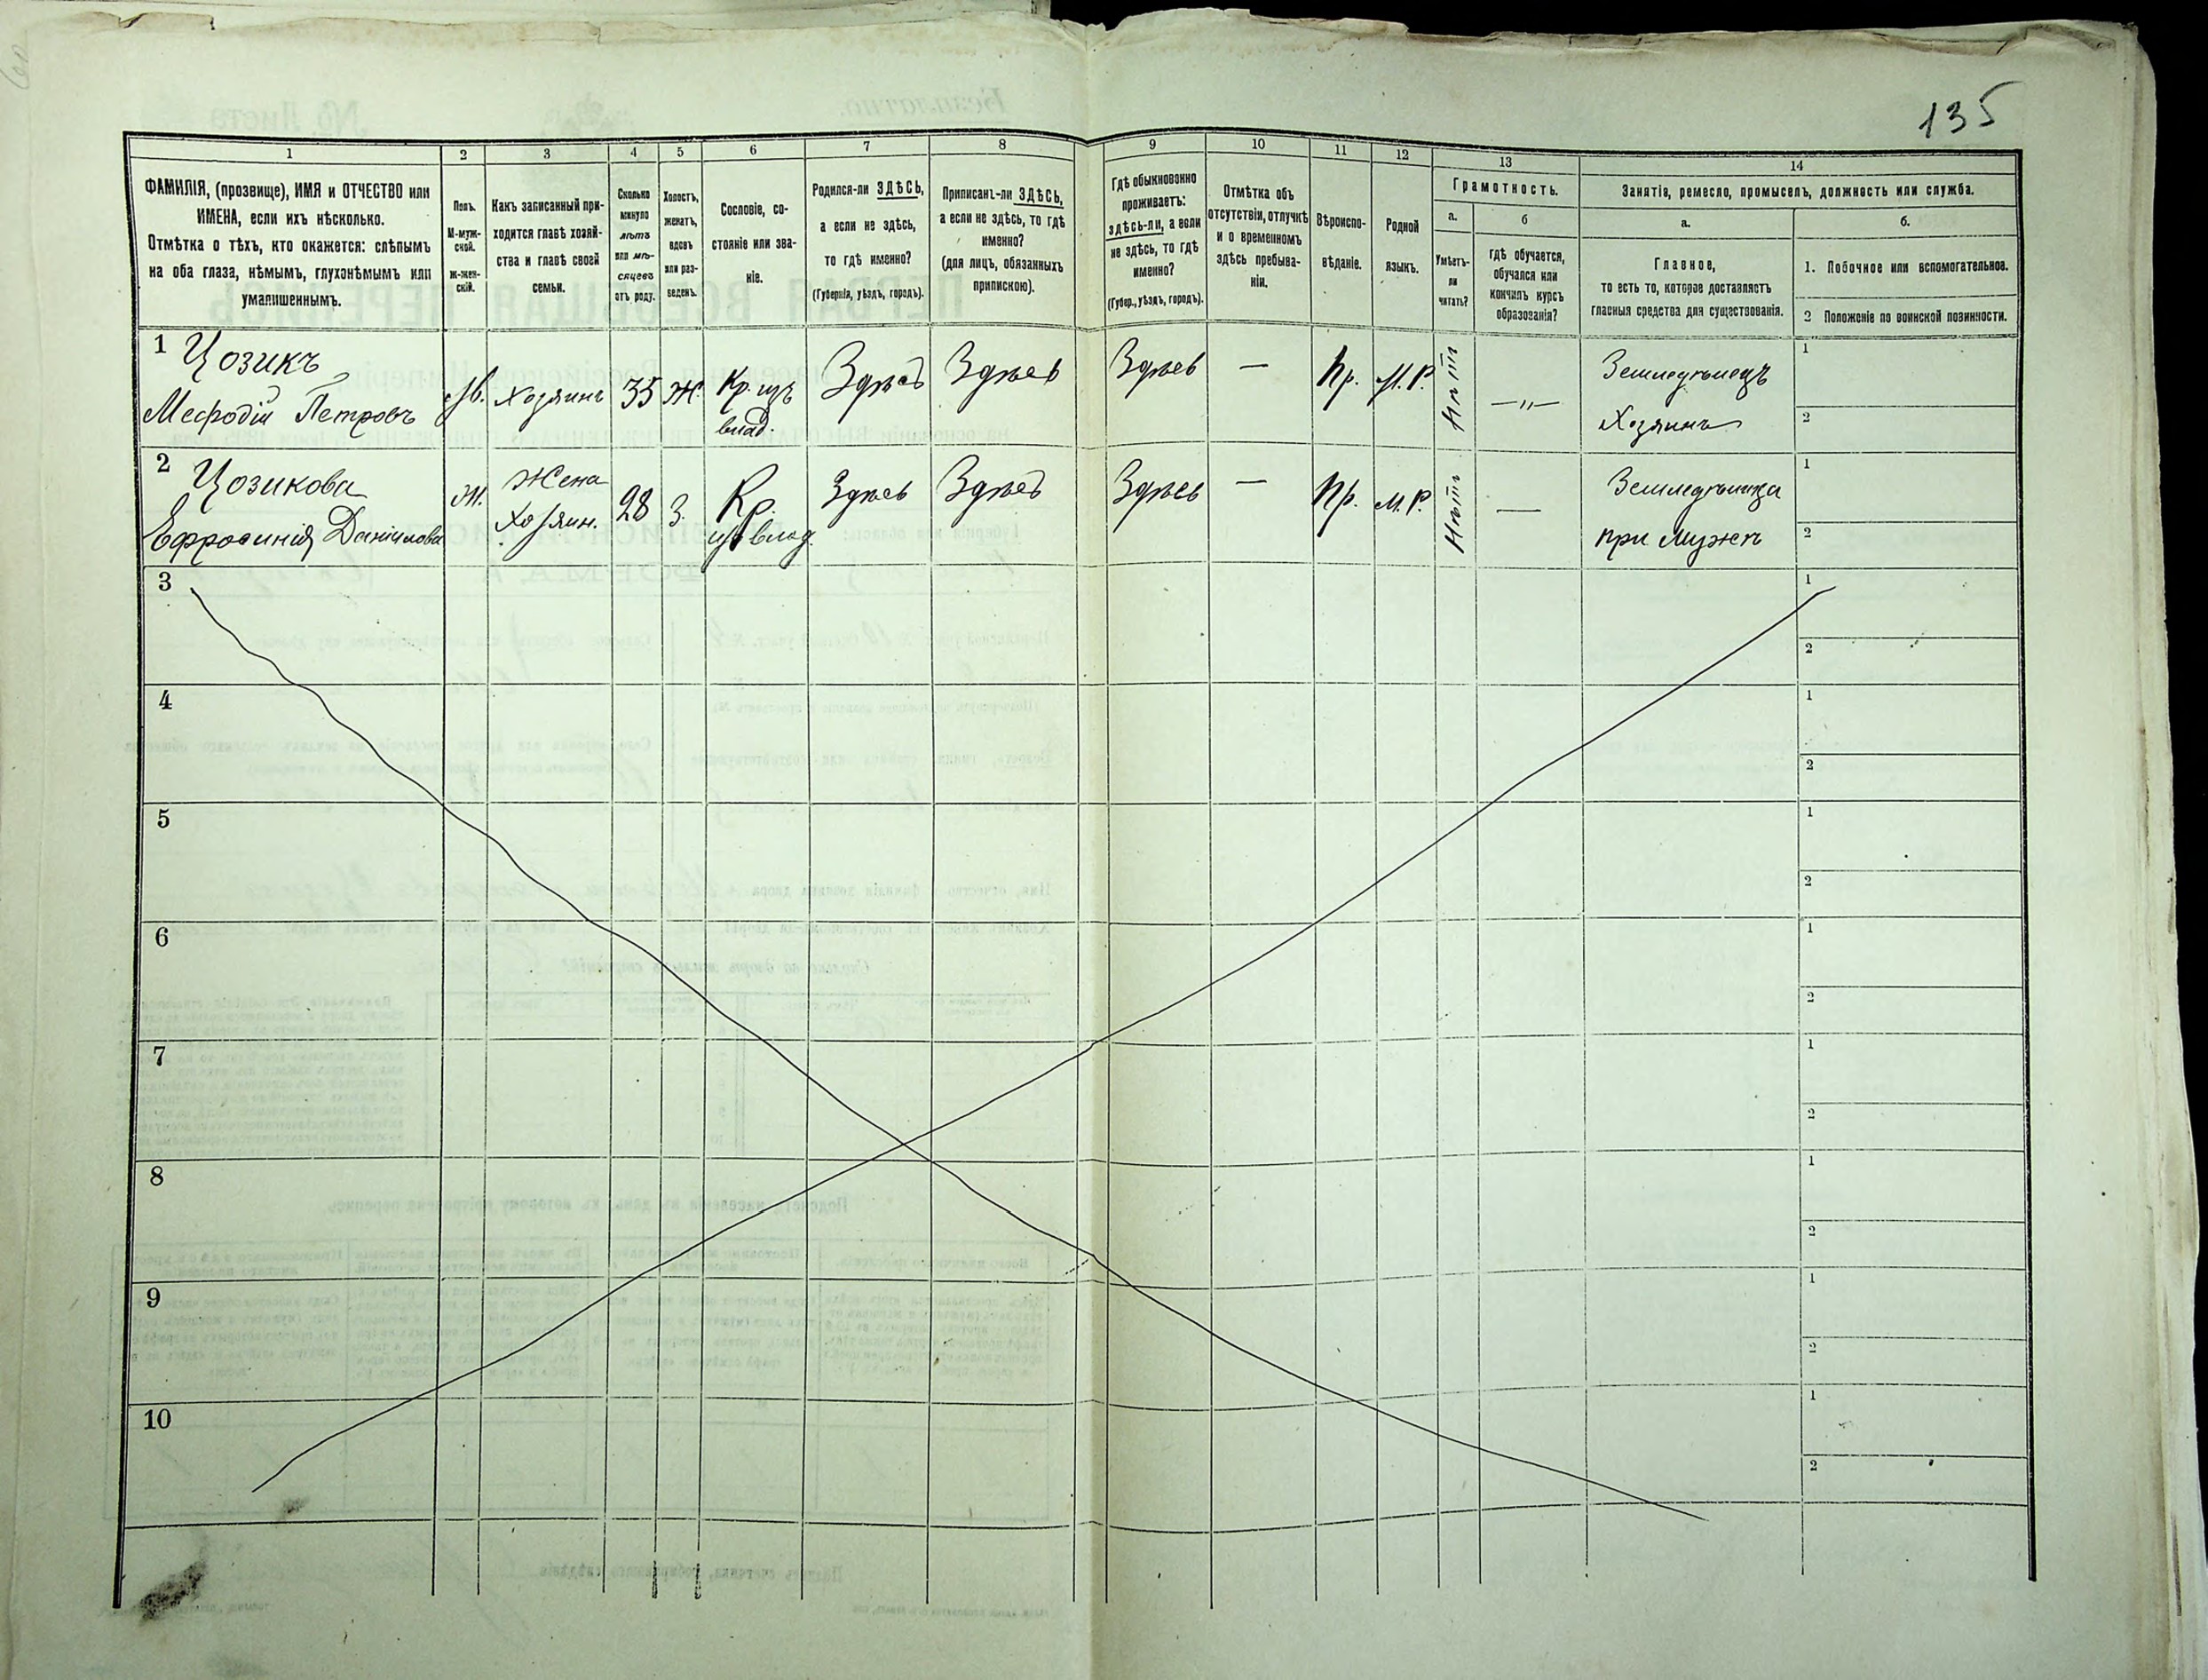 135
1
2
3
4
5
6
7
8
9
10
11
12
13
14
ФАМИЛІЯ, (прозвище), ИМЯ и ОТЧЕСТВО или
ИМЕНА, если ихъ нѣсколько.
Отмѣтка о тѣхъ, кто окажется: слѣпымъ
на оба глаза, нѣмымъ, глухонѣмымъ или
умалишеннымъ.
Полъ.
М-муж-
ской.
ж-жен-
скій.
Какъ записанный при-
ходится главѣ хозяй-
ства и главѣ своей
семьи.
Сколько
минуло
лѣтъ
или мѣ-
сяцевъ
отъ роду.
Холостъ,
женатъ,
вдовъ
или раз-
веденъ.
Сословіе, со-
стояніе или зва-
ніе.
Родился-ли ЗДѢСЬ,
а если не здѣсь,
то гдѣ именно?
(Губернія, уѣздъ, городъ).
Приписанъ-ли ЗДѢСЬ,
а если не здѣсь, то гдѣ
именно?
(для лицъ, обязанныхъ
припискою).
Гдѣ обыкновенно
проживаетъ:
здѣсь-ли, а если
не здѣсь, то гдѣ
именно?
(Губер., уѣздъ, городъ).
Отмѣтка объ
отсутствіи, отлучкѣ
и о временномъ
здѣсь пребыва-
ніи.
Вѣроиспо-
вѣданіе.
Родной
языкъ.
Грамотность.
а.
Умѣетъ-
ли
читать?
б
гдѣ обучается,
обучался или
кончилъ курсъ
образованія?
Занятіе, ремесло, промыселъ, должность или служба.
а.
Главное,
то есть то, которое доставляетъ
главныя средства для существованія.
б.
1. Побочное или вспомогательное.
2 Положеніе по воинской повинности.
1 Цозикъ
Мефодій Петровъ
М.
Хозяинъ
35
Ж.
Кр. изъ
влад.
Здѣсь
Здѣсь
Здѣсь
—
Пр.
М.Р.
Нѣтъ
—"—
Земледѣлецъ
Хозяинъ
1
2
2 Цозикова
Ефросинія Данилова
Ж.
Жена
Хозяин.
28
З.
Кр.
изъ влад.
Здѣсь
Здѣсь
Здѣсь
—
Пр.
М.Р.
Нѣтъ
—
Земледѣлица
при мужѣ
1
2
3
1
2
4
1
2
5
1
2
6
1
2
7
1
2
8
1
2
9
1
2
10
1
2